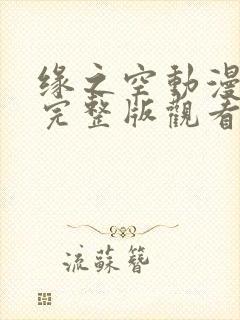 缘之空動漫
完整版觀看
流蘇簪